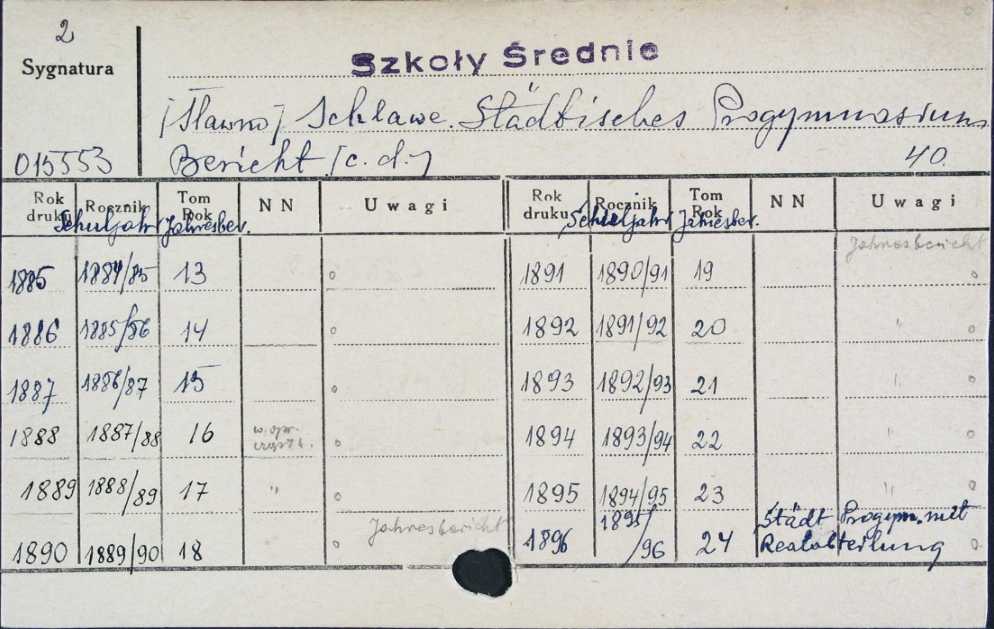 2
Sygnatura
Szkoły Średnie
[Sławno] Schlawe. Städtisches Progymnasium
015553 Bericht [c. d.] 40.
Rok druku Rocznik Tom Rok NN Uwagi Rok druku Rocznik Tom Rok NN Uwagi
Schuljahr Jahresber. Schuljahr Jahresber.
Jahresbericht
1885 1884/85 13 o 1891 1890/91 19 o
1886 1885/86 14 o 1892 1891/92 20 " o
1887 1886/87 15 o 1893 1892/93 21 " o
1888 1887/88 16 w opr. o 1894 1893/94 22 " o
1889 1888/89 17 " o 1895 1894/95 23 " o
1890 1889/90 18 o Jahresbericht 1896 1895/96 24 Städt Progym. mit
Realabteilung o